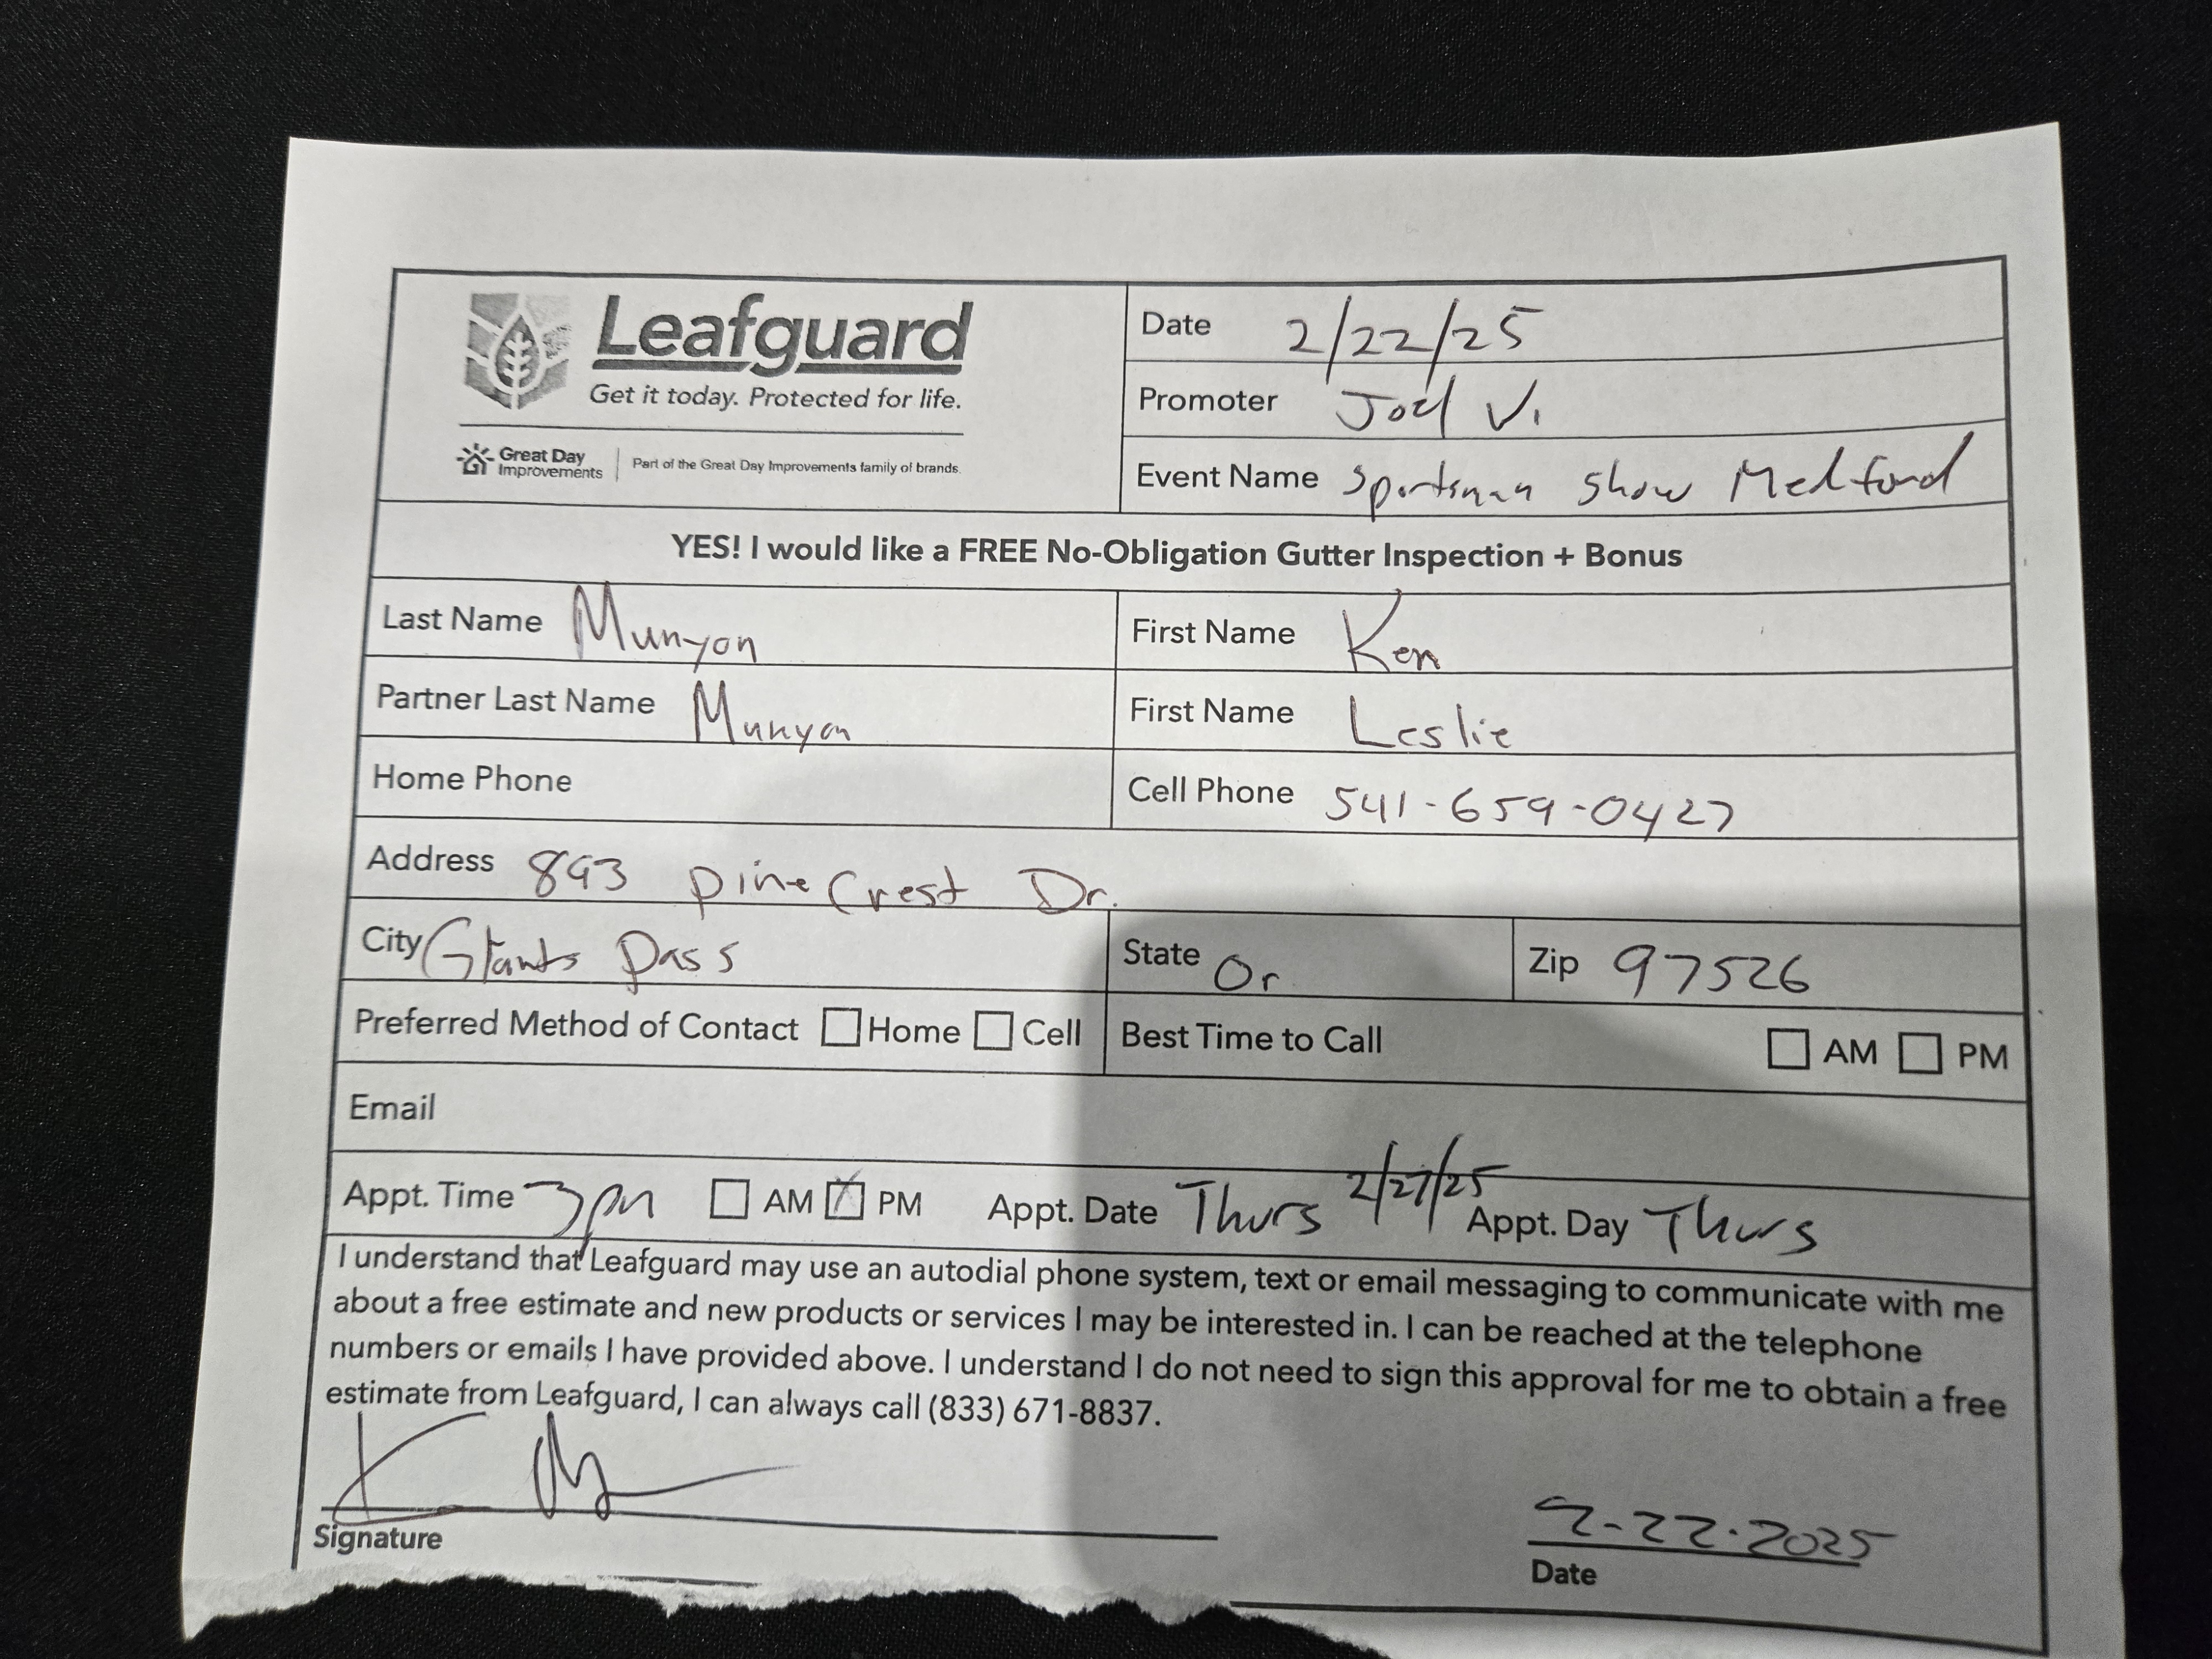 Leafguard
Get it today. Protected for life.
Great Day Improvements | Part of the Great Day Improvements family of brands.
Date 2/22/25
Promoter Joel V.
Event Name Sportsman Show Medford
YES! I would like a FREE No-Obligation Gutter Inspection + Bonus
Last Name Munyon First Name Ken
Partner Last Name Munyon First Name Leslie
Home Phone Cell Phone 541-659-0427
Address 893 Pine Crest Dr.
City Grants Pass State Or Zip 97526
Preferred Method of Contact Home Cell Best Time to Call AM PM
Email
Appt. Time 3pm AM PM Appt. Date Thurs 2/27/25 Appt. Day Thurs
I understand that Leafguard may use an autodial phone system, text or email messaging to communicate with me
about a free estimate and new products or services I may be interested in. I can be reached at the telephone
numbers or emails I have provided above. I understand I do not need to sign this approval for me to obtain a free
estimate from Leafguard, I can always call (833) 671-8837.
2-22-2025
Signature Date